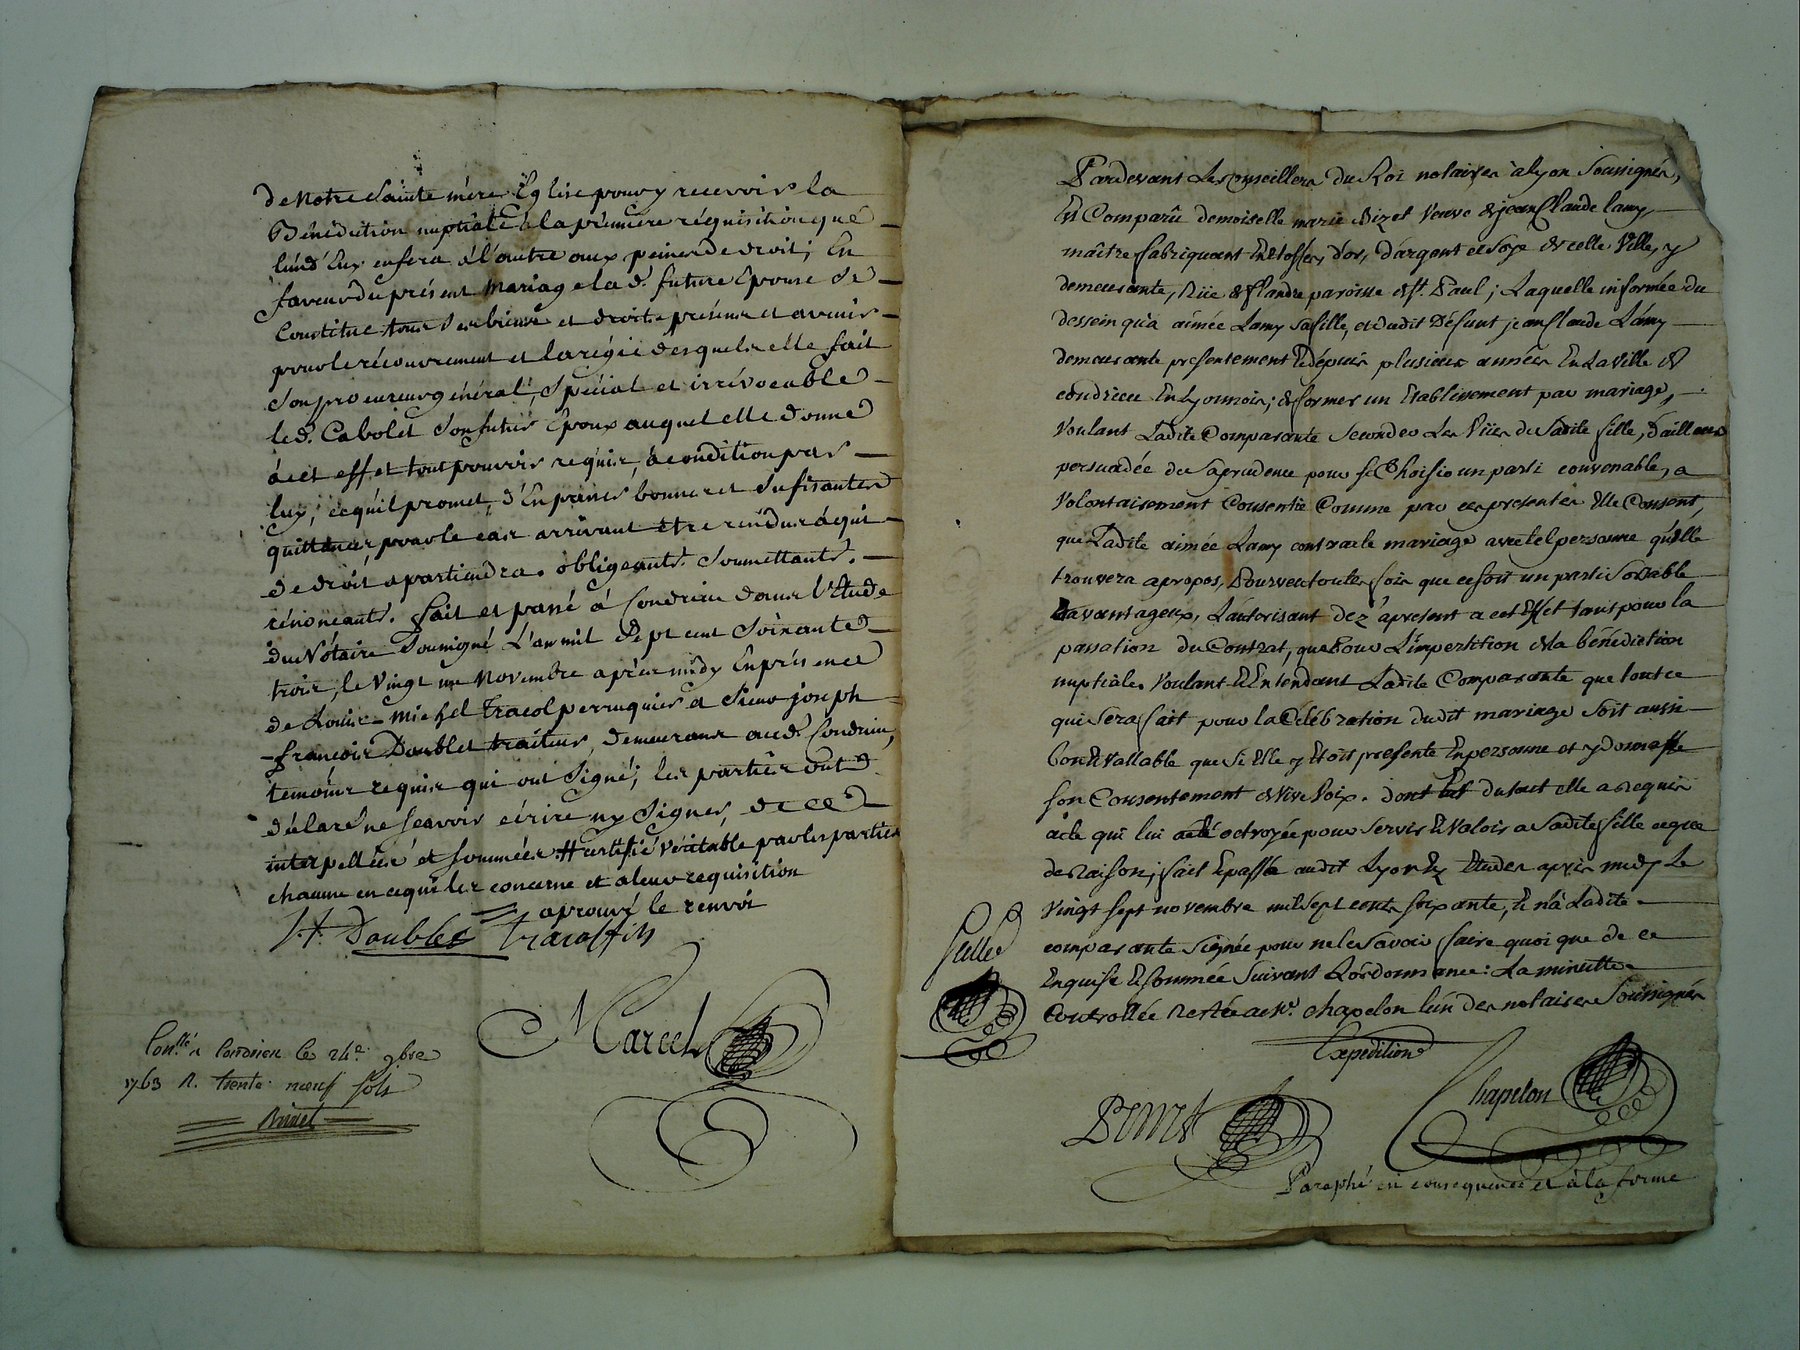 de Notre Sainte mère Eglise pour y recevoir la
Bénédiction nuptiale à la prémiere réquisition que
l'un d'Eux en fera à l'autre aux peines de droit; En
faveur du présent Mariage la d. future Epouse Se
Constitue tous Ses biens et droits présens et avenir
pour le récouvrement et la régie desquels elle fait
Son procureur général, Spécial et irrévocable
led. Cabolet Son futur Epoux auquel elle donne
à cet effet tout pouvoir requis, à condition par
luy, ce qu'il promet, d'En passer bonnes et Sufisantes
quittances, pour le cas arrivant être rendus à qui
de droit apartiendra. obligeants. Soumettants.
rénonçants. fait et passé à Condrieu dans l'Etude
du Nótaire Soussigné L'an mil Sept cent Soixante
trois, le Vingt un Novembre après midy En présence
de Louis-Michel Tracol perruquier et Sieur joseph
françois Doublet traiteur, demeurans aud. Condrieu,
temoins requis qui ont Signé; les parties ont
déclaré ne Scavoir écrire ny Signer, de ce
interpellées et Sommées. # certifié véritable par les parties
chacune en ce qui les concerne et a leur requisition
aprouvé le renvoi
J. f. Doublet Tracol fils
Marcel
Con.llé a Condrieu le 24e. 9bre
1763 R. trente neuf Sols
Binet
Pardevant Les Conseillers du Roi notaires à Lyon Soussignés,
Est Comparüe demoiselle marie Bizet Veuve de jean Claude lamy
maître fabriquant En Etoffes, d'or, d'argent et Soye de cette Ville, y
demeurante, Rüe de flandre paroisse de St. Paul; Laquelle informée du
dessein qu'a aimée Lamy sa fille, et dudit Défunt jean Claude Lamy
demeurante présentement & dépuis plusieurs années En La Ville de
condrieu En Lyonnois; de former un Etablissement par mariage,
Voulant Ladite Comparante Seconder Les Vües de Sadite fille, d'ailleurs
persuadée de Sa prudence pour se Choisir un parti convenable, a
Volontairement Consentie Comme par ces presentes Elle Consent,
que Ladite aimée Lamy contracte mariage avec tel personne qu'Elle
trouvera apropos, Pourveu toutes fois que ce soit un parti Sortable
& avantageux, L'autorisant dez a present a cet Effet tant pour la
passation du Contrat, que Pour L'impertition de la bénédiction
nuptiale. Voulant & Entendant Ladite Comparante que tout ce
qui Sera fait pour la Célébration dudit mariage Soit aussi
bon & Vallable que Si Elle y Etoit presente En personne et y donnasse
son Consentement de Vive Voix. dont du tout elle a requis
acte qui lui a été octroyée pour Servir & Valoir a Sadite fille ce que
de Raison; fait & passée audit Lyon Ez Etudes après midy Le
Vingt sept novembre mil Sept cents soixante, & n'a Ladite
comparante Signée pour ne le Savoir faire quoi que de ce
Enquise & Sommée Suivant L'ordonnance: La minutte
Controllée Restée a Me. chapelon l'un des notaires Soussignés
Expedition
Chapelon
Paraphé en consequence et à la forme